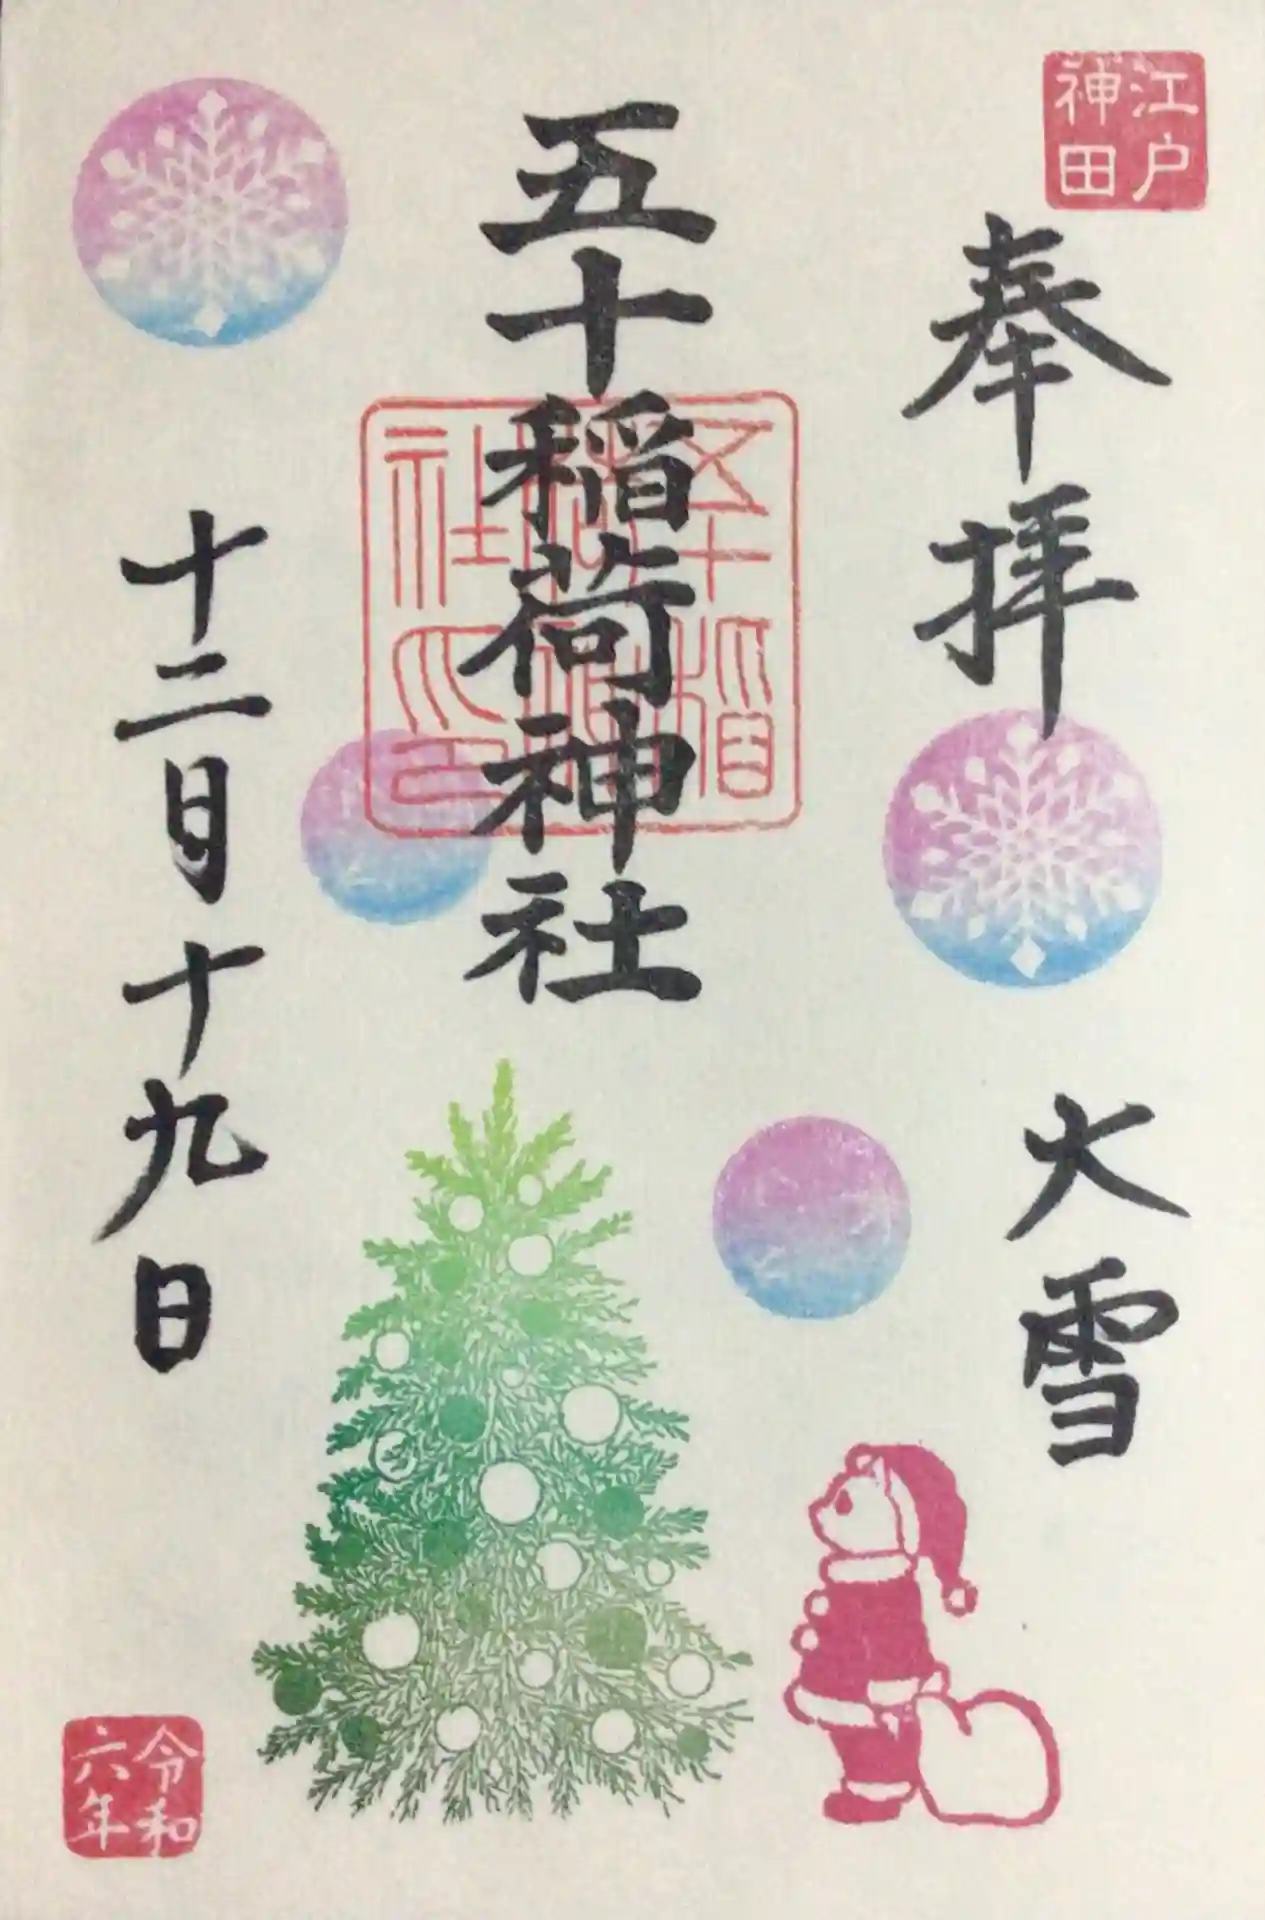 江戸
神田
奉拝
大雪
五十稲荷神社
五十稲荷神社印
十二日十九日
令和
六年